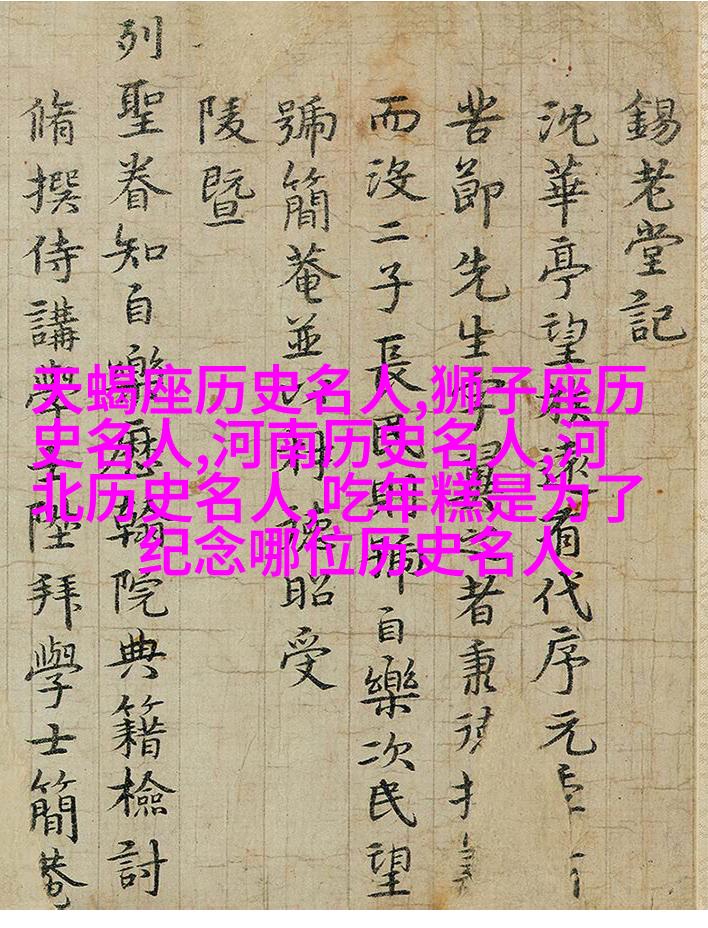 錫老堂記
沈華亭望族遠有代序元
苦節先生字翼之者秉
而没二子長民則號自樂次民望
號簡菴並以昭受
陵暨
列聖眷知自樂歷翰院典籍檢討
脩撰侍講學士陞拜學士簡菴
天蝎座历史名人,狮子座历
史名人,河南历史名人,河
北历史名人,吃年糕是为了
纪念哪位历史名人